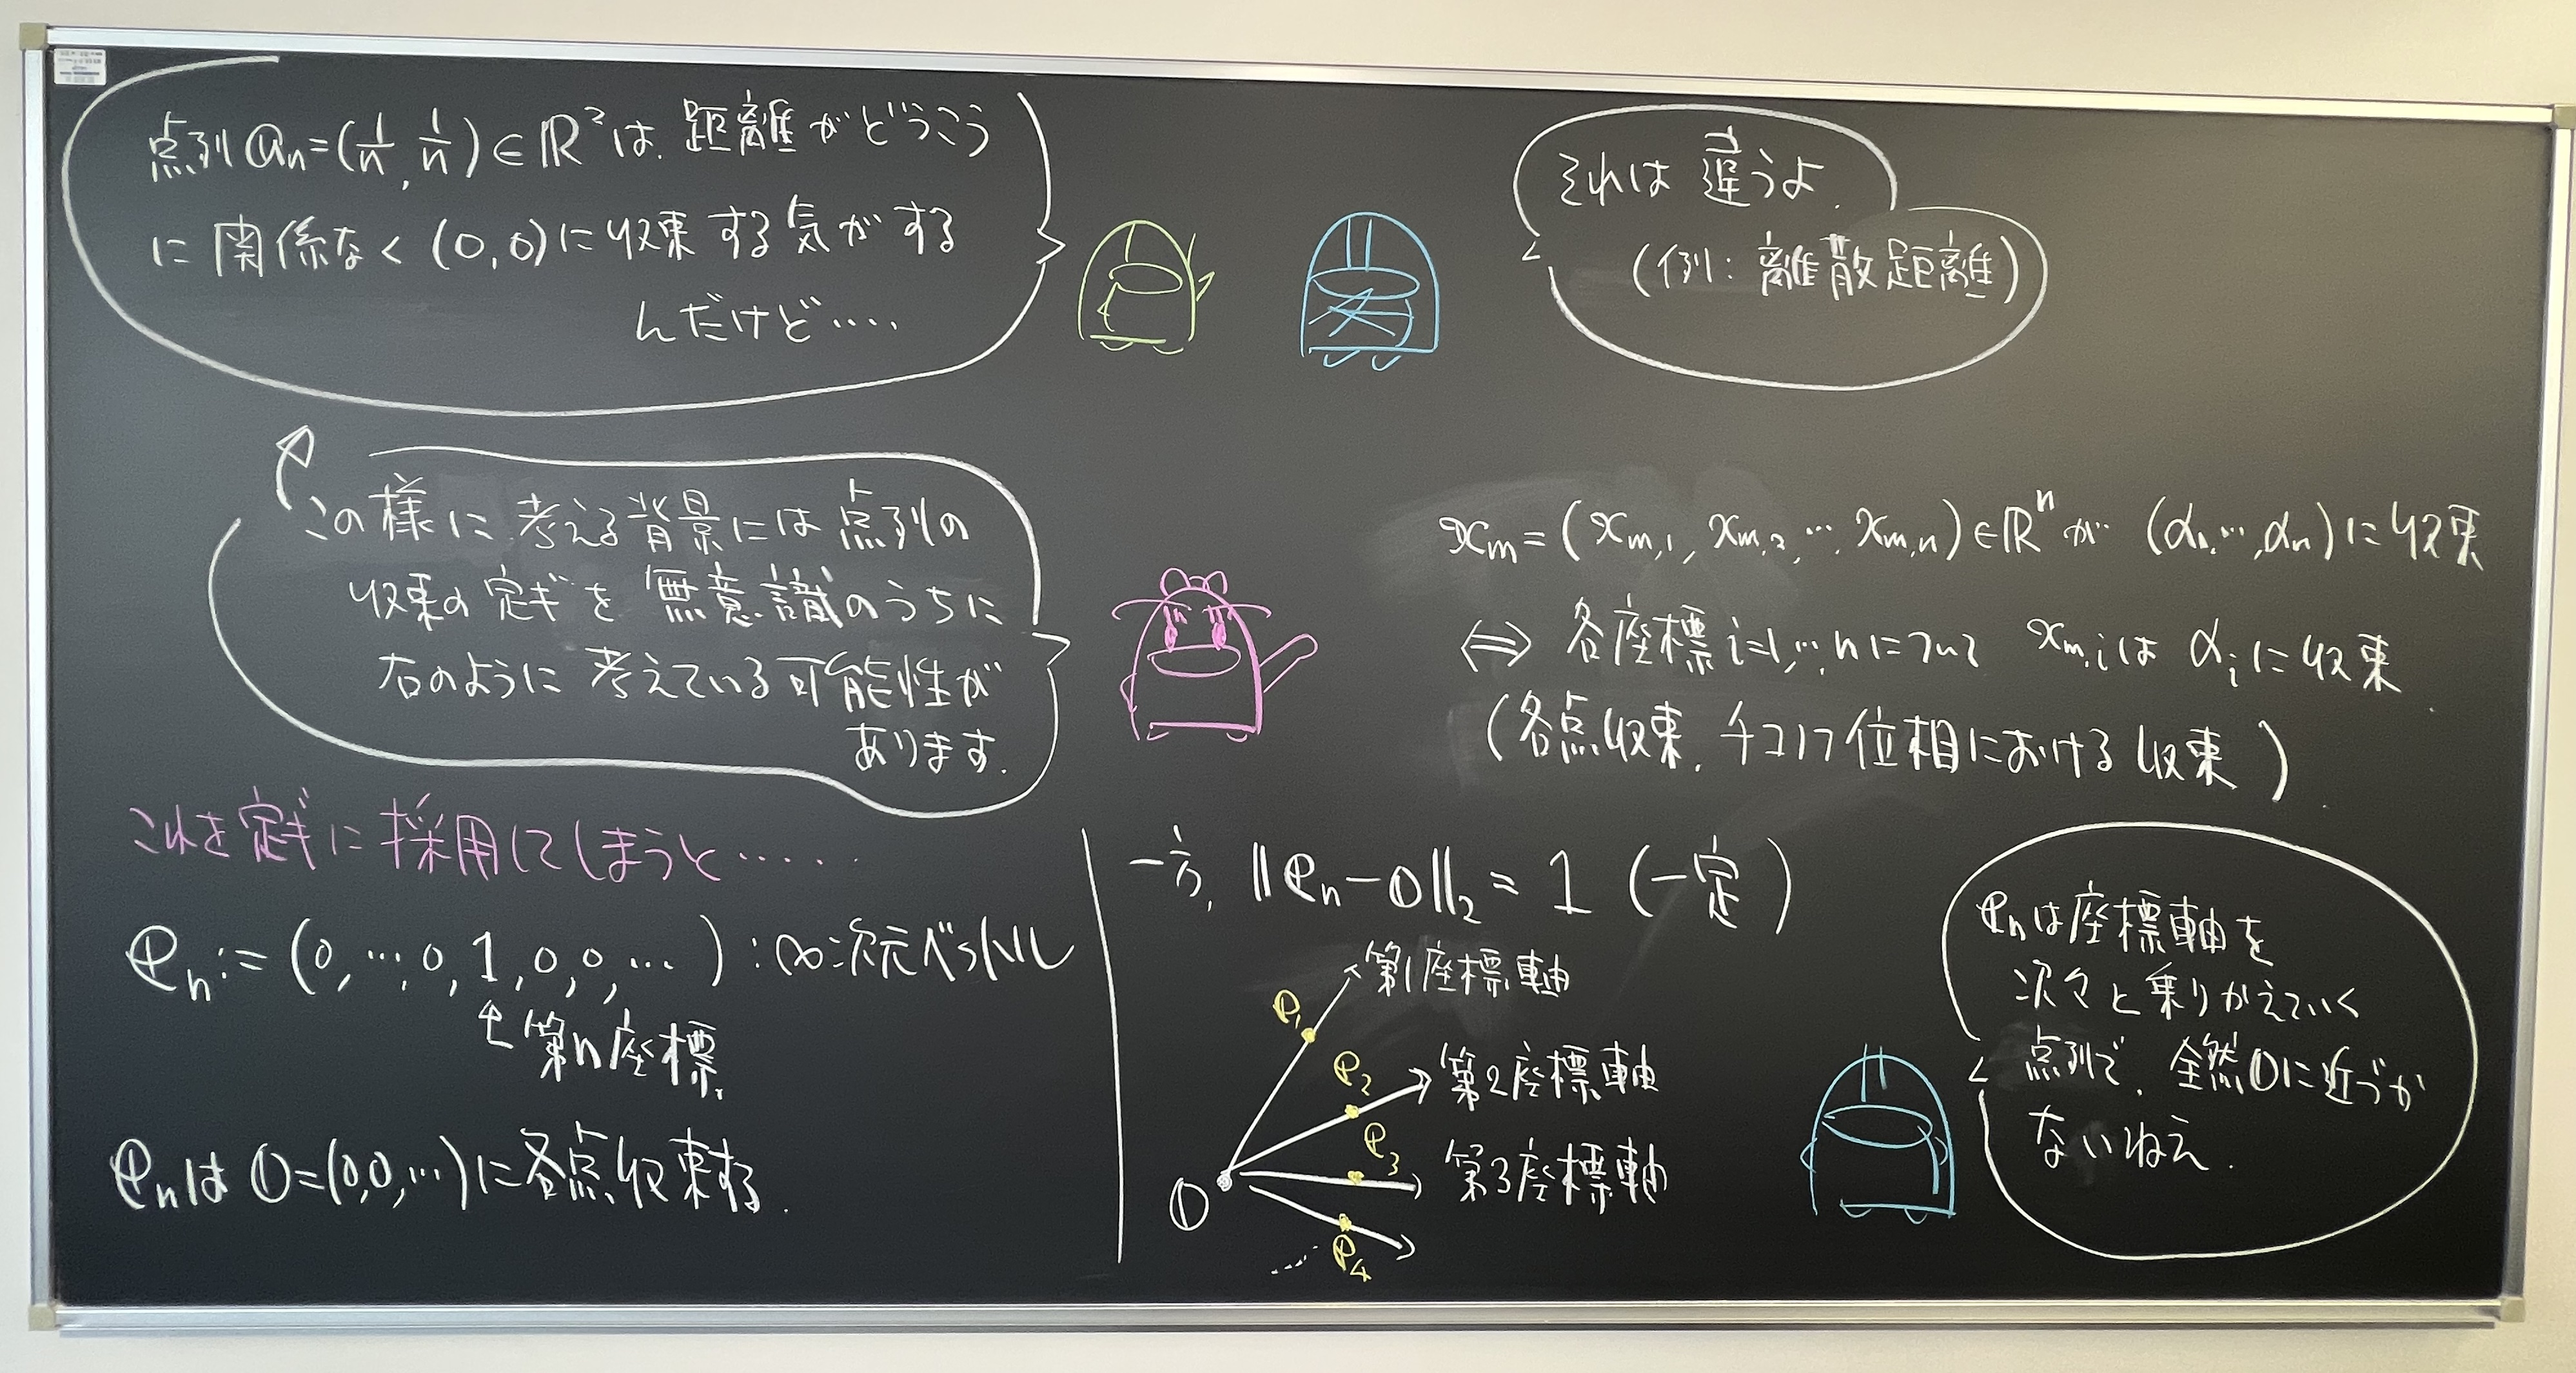 点列 𝕒n=(1/n, 1/n)∈ℝ²は、距離がどうこう
に関係なく (0,0)に収束する気がする
んだけど‥‥
それは違うよ.
(例: 離散距離)
この様に考える背景には点列の
収束の定ギを無意識のうちに
右のように考えている可能性が
あります.
xm=(xm,1, xm,2, …, xm,n)∈ℝⁿが (α1,…,αn)に収束
⇔ 各座標 i=1,…,nについて xm,iは αiに収束
(各点収束, チコノフ位相における収束)
これを定ギに採用してしまうと‥‥‥
𝕖n:=(0,…,0,1,0,0,…):∞次元ベクトル
↑第n座標.
𝕖nは 𝟘=(0,0,…)に各点収束する.
一方, ‖𝕖n−𝟘‖₂=1 (一定)
第1座標軸
𝕖1
第2座標軸
𝕖2
第3座標軸
𝕖3
𝟘
𝕖4
𝕖nは座標軸を
次々と乗りかえていく
点列で, 全然𝟘に近づか
ないねえ.